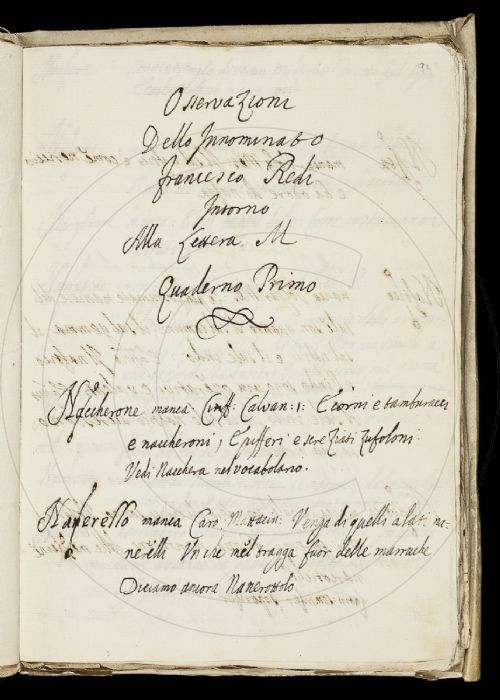 92
Osservazioni
Dello Innominato
Francesco Redi
Intorno
Alla Lettera M
Quaderno Primo
Naccherone manca Ciriff: Calvan: 1: E corni e tamburacci
e naccheroni, E pifferi e
Vedi Nacchera nel vocabolario.
Nanerello manca Caro Mattacin: Venga di quelli alati na-
nerelli Un che mel tragga fuor delle marruche
Diciamo ancora Nanerottolo